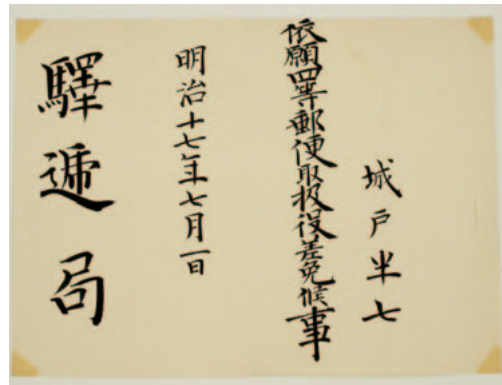 城戸半七
依願四等郵便取扱役差免候事
明治十七年七月一日
驛遞局